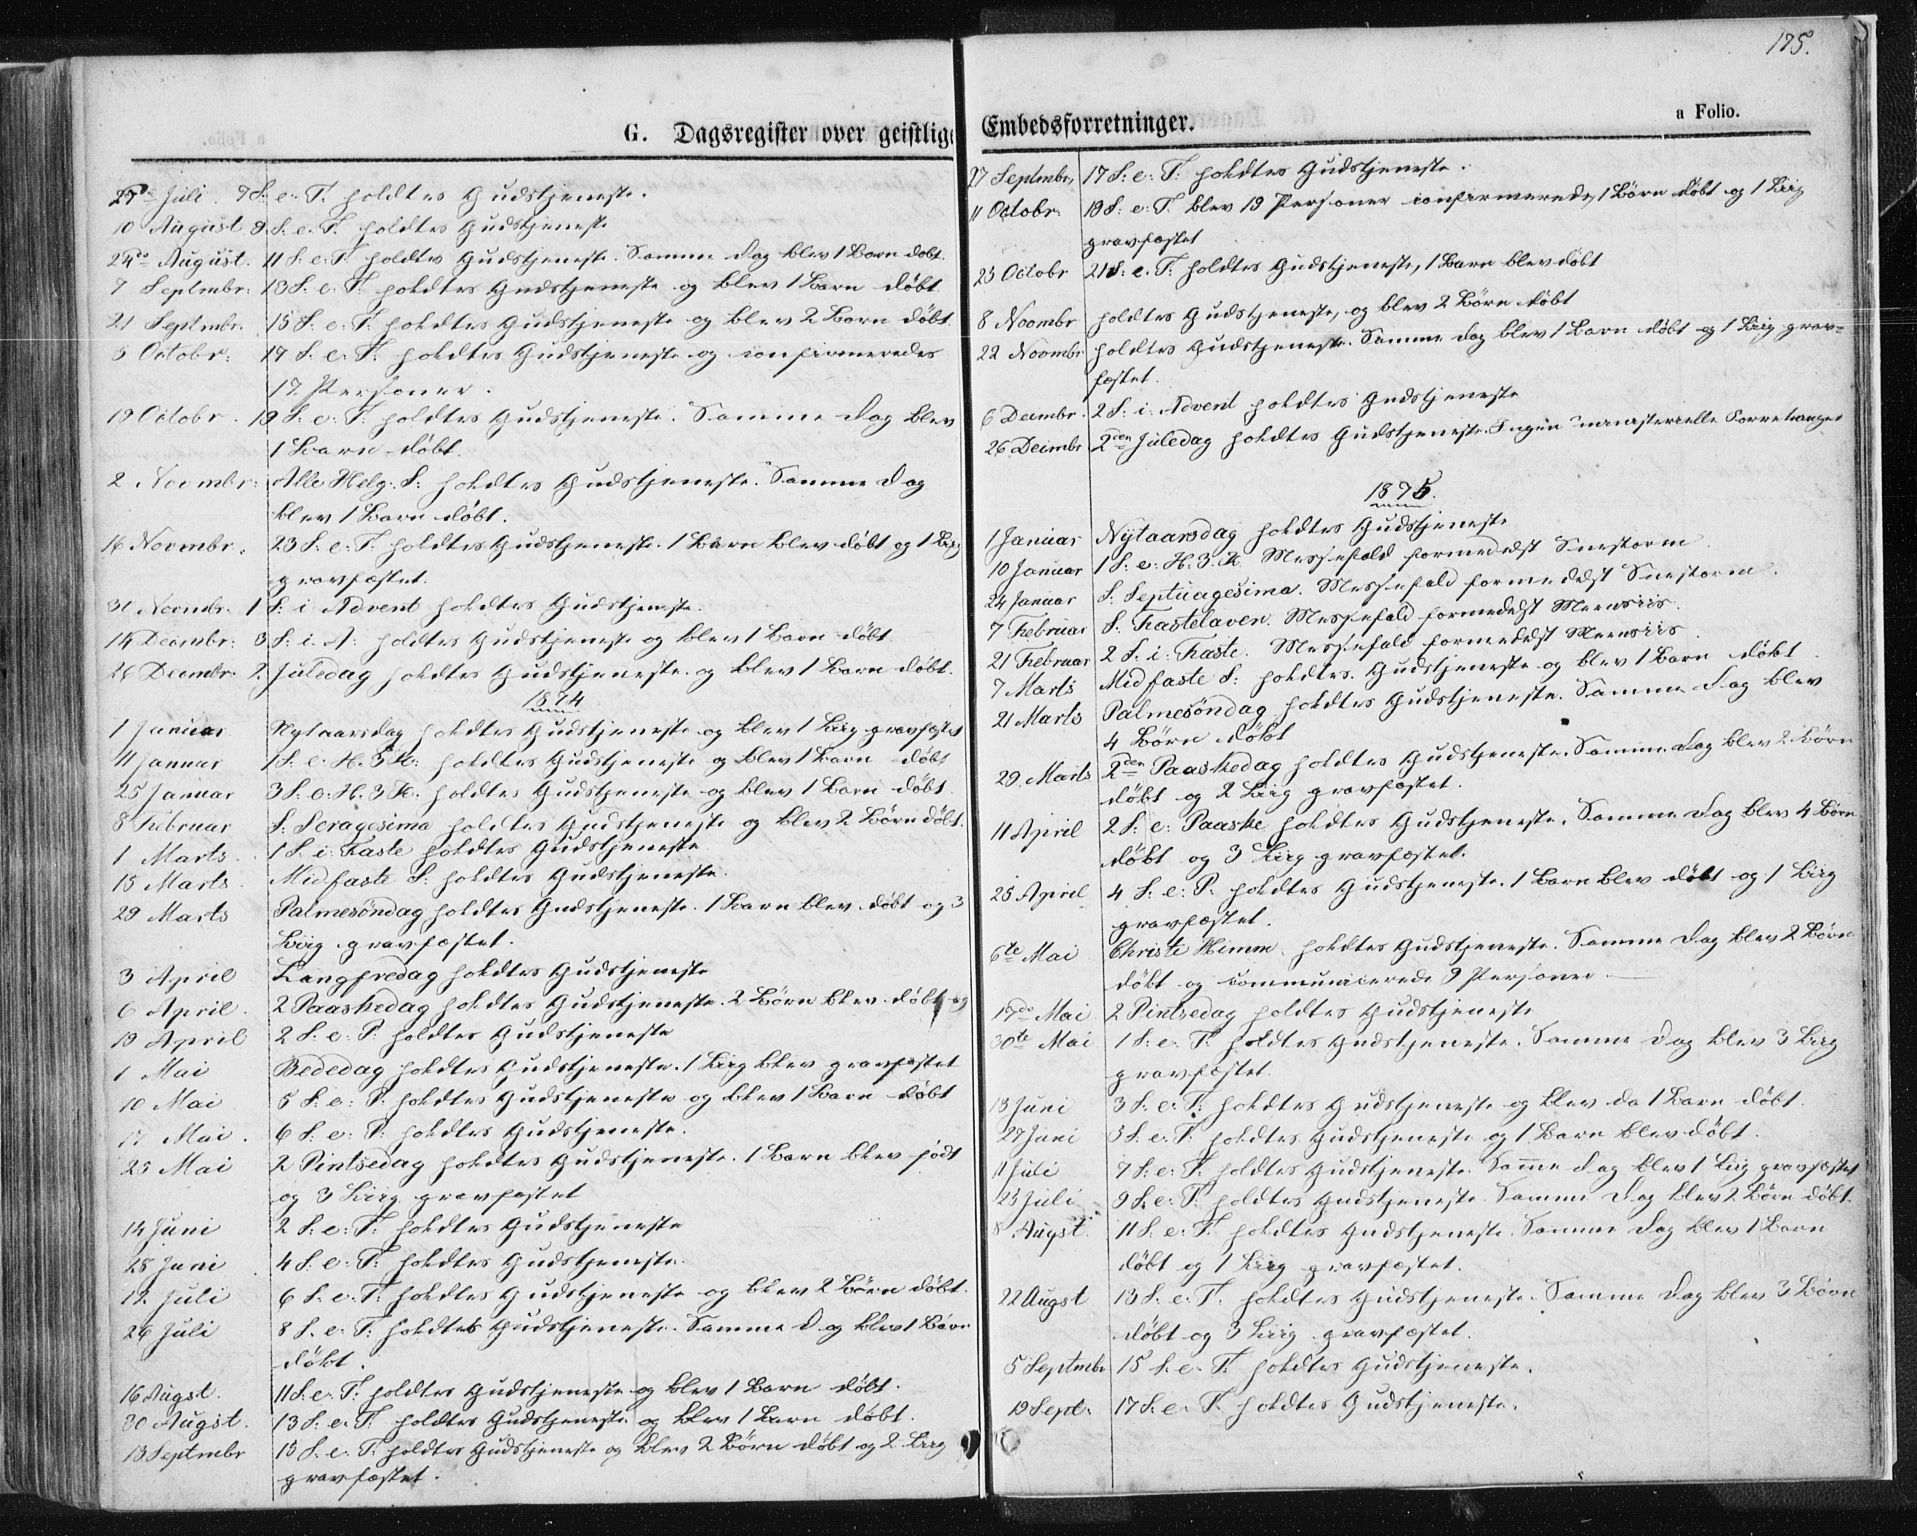 G. Dagsregister over geistlige
27de Juli. 7 S. e. T. holdtes Gudstjeneste.
10 August 9 S. e. T. holdtes Gudstjeneste
24de August. 11 S. e. T. holdtes Gudstjeneste. Samme Dag blev 1 Barn døbt.
7 Septmbr. 13 S. e. T. holdtes Gudstjeneste og blev 1 Barn døbt.
21 Septmbr. 15 S. e. T. holdtes Gudstjeneste og blev 2 Børn døbt.
5 Octobr. 17 S. e. T. holdtes Gudstjeneste og confirmeredes
17 Personer.
19 Octobr. 19 S. e. T. holdtes Gudstjeneste. Samme Dag blev
1 Barn døbt.
2 Novmbr: Alle Helg. S: holdtes Gudstjeneste. Samme Dag
blev 1 Barn døbt.
16 Novmbr. 23 S. e. T. holdtes Gudstjeneste. 1 Barn blev døbt og 1 Liig
gravfæstet.
30 Novmbr. 1 S. i Advent holdtes Gudstjeneste.
14 Decmbr: 3 S. i. A: holdtes Gudstjeneste og blev 1 Barn døbt.
26 Decmbr. 2. Juledag holdtes Gudstjeneste og blev 1 Barn døbt.
1874
1 Januar Nytaarsdag holdtes Gudstjeneste og blev 1 Liig gravfæstet
11 Januar 1 S. e. H. 3 K. holdtes Gudstjeneste og blev 1 Barn døbt
25 Januar 3 S. e. H. 3 K. holdtes Gudstjeneste og blev 1 Barn døbt.
8 Februar S: Sexagesima holdtes Gudstjeneste og blev 2 Børn døbt.
1 Marts. 1 S. i. Faste holdtes Gudstjeneste
15 Marts. Midfaste S: holdtes Gudstjeneste.
29 Marts Palmesöndag holdtes Gudstjeneste. 1 Barn blev døbt og 3
Liig gravfæstet.
3 April Langfredag holdtes Gudstjeneste
6 April. 2 Paaskedag holdtes Gudstjeneste. 2 Børn blev døbt og
19 April 2 S. e. P. holdtes Gudstjeneste
1 Mai Bededag holdtes Gudstjeneste. 1 Liig blev gravfæstet
10 Mai 5 S. e. P. holdtes Gudstjeneste og blev 1 Barn døbt
17 Mai. 6 S. e. P. holdtes Gudstjeneste.
25 Mai 2 Pintsedag holdtes Gudstjeneste. 1 Barn blev født
og 3 Liig gravfæstet
14 Juni 2 S. e. T. holdtes Gudstjeneste
28 Juni 4 S. e. T. holdtes Gudstjeneste.
12 Juli 6 S. e. T. holdtes Gudstjeneste og blev 2 Børn døbt.
26 Juli 8 S. e. T. holdtes Gudstjeneste. Samme Dag blev 1 Barn
døbt.
16 Augst. 11 S. e. T. holdtes Gudstjeneste og blev 1 Barn døbt.
30 Augst. 13 S. e. T. holdtes Gudstjeneste og blev 1 Barn døbt.
13 Septmbr 15 S. e. T. holdtes Gudstjeneste og blev 2 Børn døbt og 2 Liig
gravfæstet.
175.
Embedsforretninger.
a Folio.
27 Septmbr, 17 S. e. T. holdtes Gudstjeneste.
11 Octobr. 19 S. e. T. blev 19 Personer confirmerede, 1 Børn døbt og 1 Liig
gravfæstet
25 Octobr 21 S. e. T. holdtes Gudstjeneste, 1 Barn blev døbt
8 Novmbr holdtes Gudstjeneste, og blev 2 Børn døbt
22 Novmbr holdtes Gudstjeneste. Samme Dag blev 1 Barn døbt og 1 Liig grav-
fæstet.
6 Decmbr. 2 S. i. Advent holdtes Gudstjeneste
26 Decmbr 2den Juledag holdtes Gudstjeneste. Ingen ministerielle Forretninger
1875.
1 Januar Nytaarsdag holdtes Gudstjeneste
10 Januar 1 S. e. H. 3. K. Messefald formedelst Snestorm
24 Januar S. Septuagesima. Messefald formedelst Snestorm.
7 Februar S. Fastelaven. Messefald formedelst Meenriis.
21 Februar 2 S. i. Faste. Messefald formedelst Meenriis
7 Marts Midfaste S: holdtes Gudstjeneste og blev 1 Barn døbt
21 Marts Palmesöndag holdtes Gudstjeneste. Samme Dag blev
4 Børn døbt
29. Marts 2den Paaskedag holdtes Gudstjeneste. Samme Dag blev 2 Børn
døbt og 2 Liig gravfæstet.
11 April 2 S. e. Paaske holdtes Gudstjeneste. Samme Dag blev 4 Børn
døbt og 3 Liig gravfæstet.
25 April 4 S. e. P. holdtes Gudstjeneste. 1 Barn blev døbt og 1 Liig
gravfæstet.
6te Mai Christi Himm. holdtes Gudstjeneste. Samme Dag blev 2 Børn
døbt og communicerede 9 Personer
17de Mai 2 Pintsedag holdtes Gudstjeneste
30te Mai 1 S. e. T. holdtes Gudstjeneste. Samme Dag blev 3 Liig
gravfæstet
13 Juni 3 S. e. T. holdtes Gudstjeneste og blev da 1 Barn døbt.
27 Juni 5 S. e. T. holdtes Gudstjeneste og 1 Barn blev døbt.
11 Juli 7 S. e. T. holdtes Gudstjeneste. Samme Dag blev 1 Liig gravfæstet
25 Juli 9 S. e. T. holdtes Gudstjeneste. Samme Dag blev 2 Børn døbt.
8 Augst. 11 S. e. T. holdtes Gudstjeneste. Samme Dag blev 1 Barn
døbt og 1 Liig gravfæstet.
22 Augst 13 S. e. T. holdtes Gudstjeneste. Samme Dag blev 3 Børn
døbt og 3 Liig gravfæstet.
5 Septmbr 15 S. e. T. holdtes Gudstjeneste.
19 Sept. 17 S. e. T. holdtes Gudstjeneste.